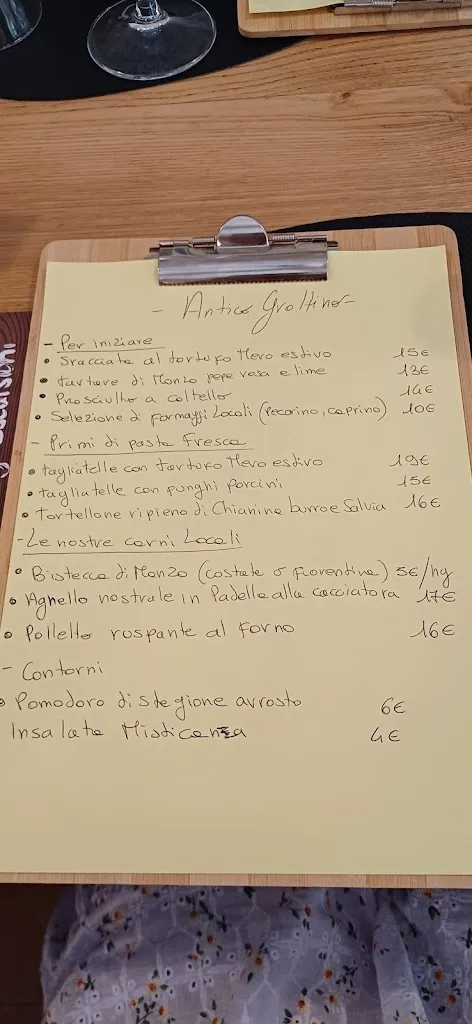 - Antico Grottino -
- Per iniziare
• Sracciata al tartufo Nero estivo 15€
• tartare di Manzo pepe rosa e lime 13€
• Prosciutto a coltello 14€
• Selezione di formaggi Locali (Pecorino, caprino) 10€
- Primi di pasta Fresca
• tagliatelle con tartufo Nero estivo 19€
• tagliatelle con funghi porcini 15€
• Tortellone ripieno di Chianina burro e Salvia 16€
- Le nostre carni Locali
• Bistecca di Manzo (costata o fiorentina) 5€/hg
• Agnello nostrale in Padella alla cacciatora 17€
• Polletto ruspante al forno 16€
- Contorni
• Pomodoro di stagione arrosto 6€
Insalata Misticanza 4€